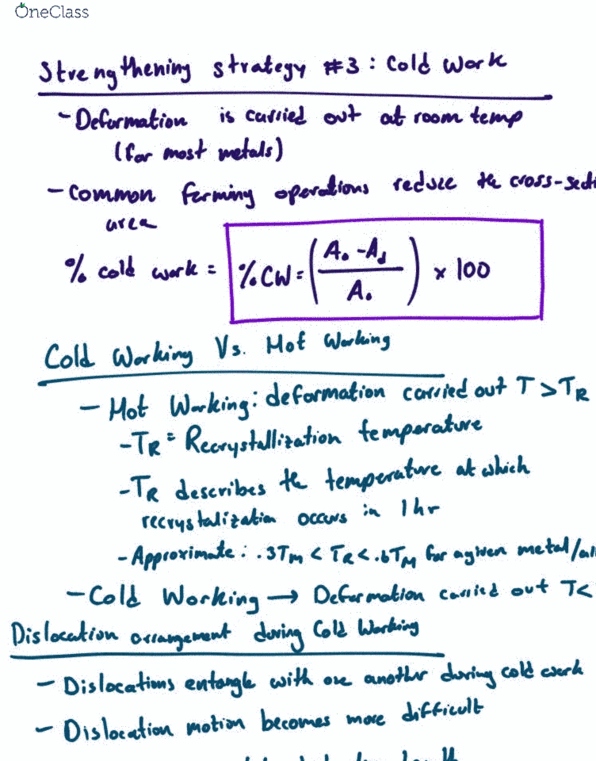 OneClass
Strengthening strategy #3: Cold Work
- Deformation is carried out at room temp
(for most metals)
- Common forming operations reduce the cross-secti
area
% cold work = %CW = (A₀ - A_d / A₀) x 100
Cold Working Vs. Hot Working
- Hot Working: deformation carried out T > T_R
- T_R = Recrystallization temperature
- T_R describes the temperature at which
recrystalization occurs in 1 hr
- Approximate: .3T_m < T_R < .6T_M for a given metal/al
- Cold Working → Deformation carried out T<
Dislocation arrangement during Cold Working
- Dislocations entangle with one another during cold work
- Dislocation motion becomes more difficult